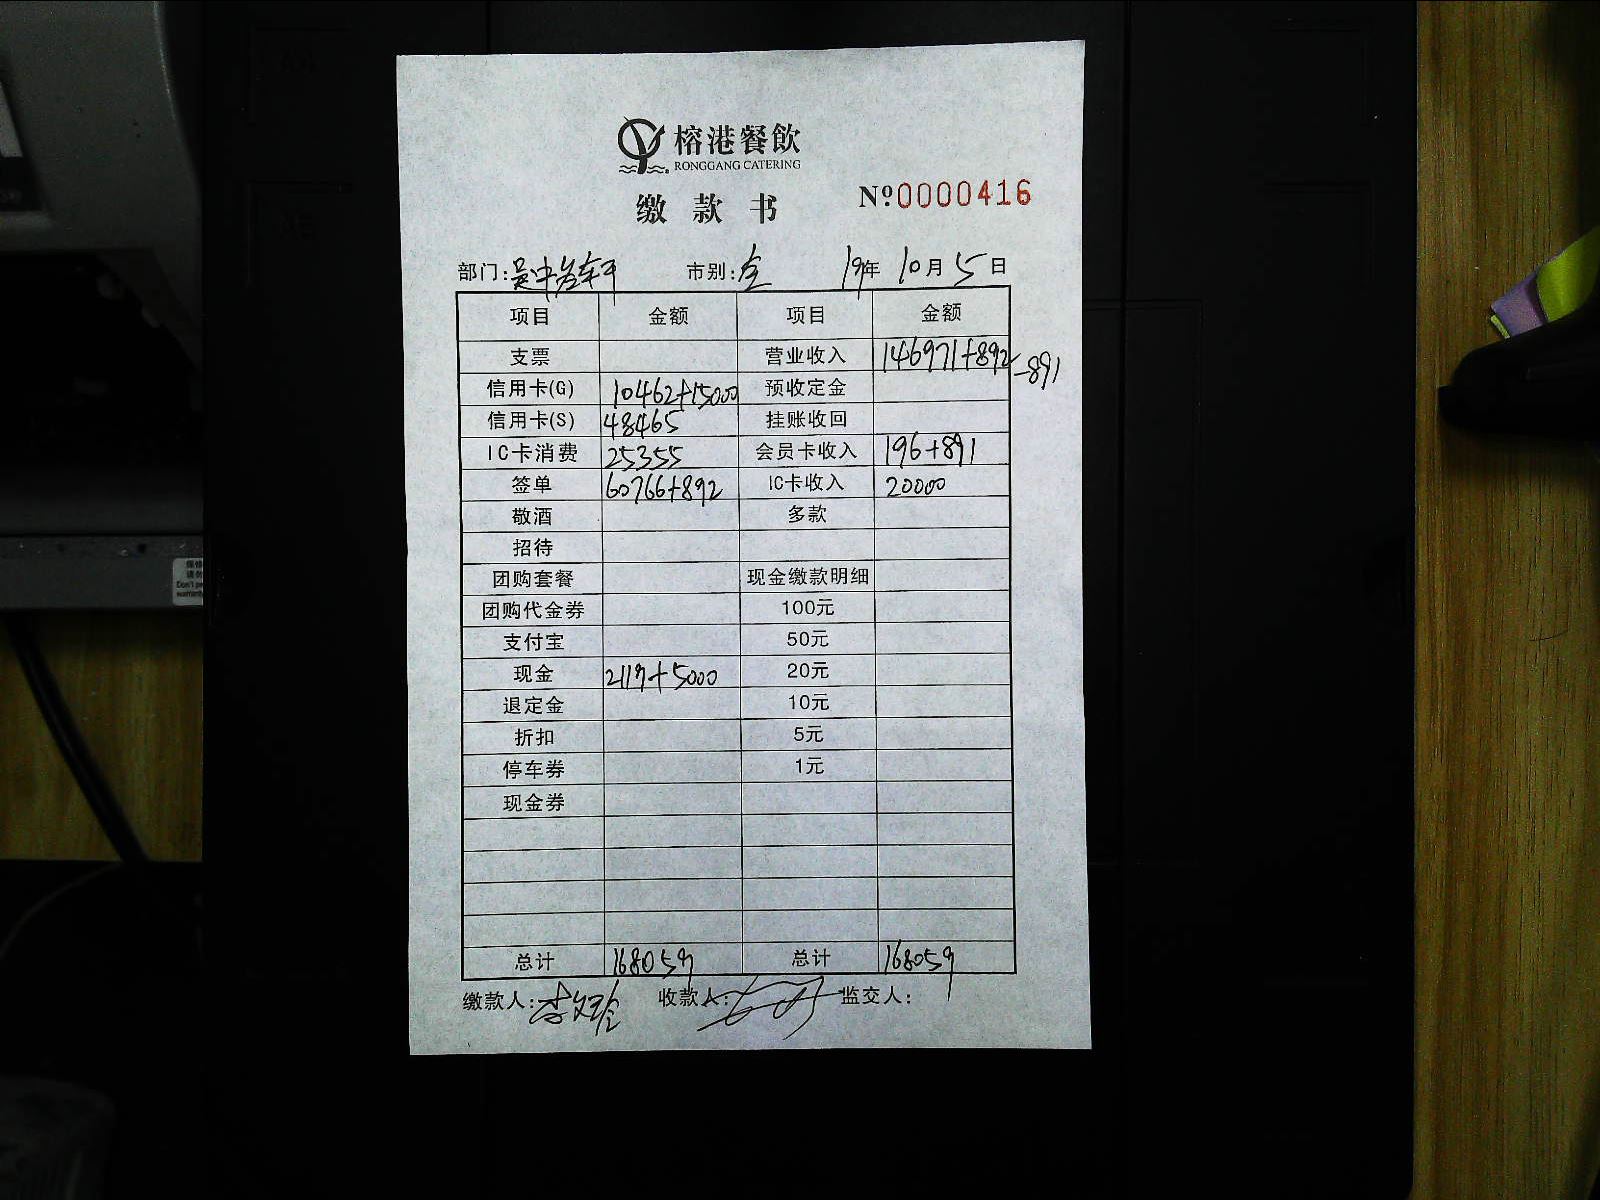 榕港餐飲
RONGGANG CATERING
缴款书 Nº0000416
部门: 市别:全 19年 10月 5日
项目 金额 项目 金额
支票 营业收入 146971+892-891
信用卡(G) 10462+15000 预收定金
信用卡(S) 48465 挂账收回
IC卡消费 25355 会员卡收入 196+891
签单 60766+892 IC卡收入 20000
敬酒 多款
招待
团购套餐 现金缴款明细
团购代金券 100元
支付宝 50元
现金 2119+5000 20元
退定金 10元
折扣 5元
停车券 1元
现金券
总计 168059 总计 168059
缴款人: 收款人: 监交人: